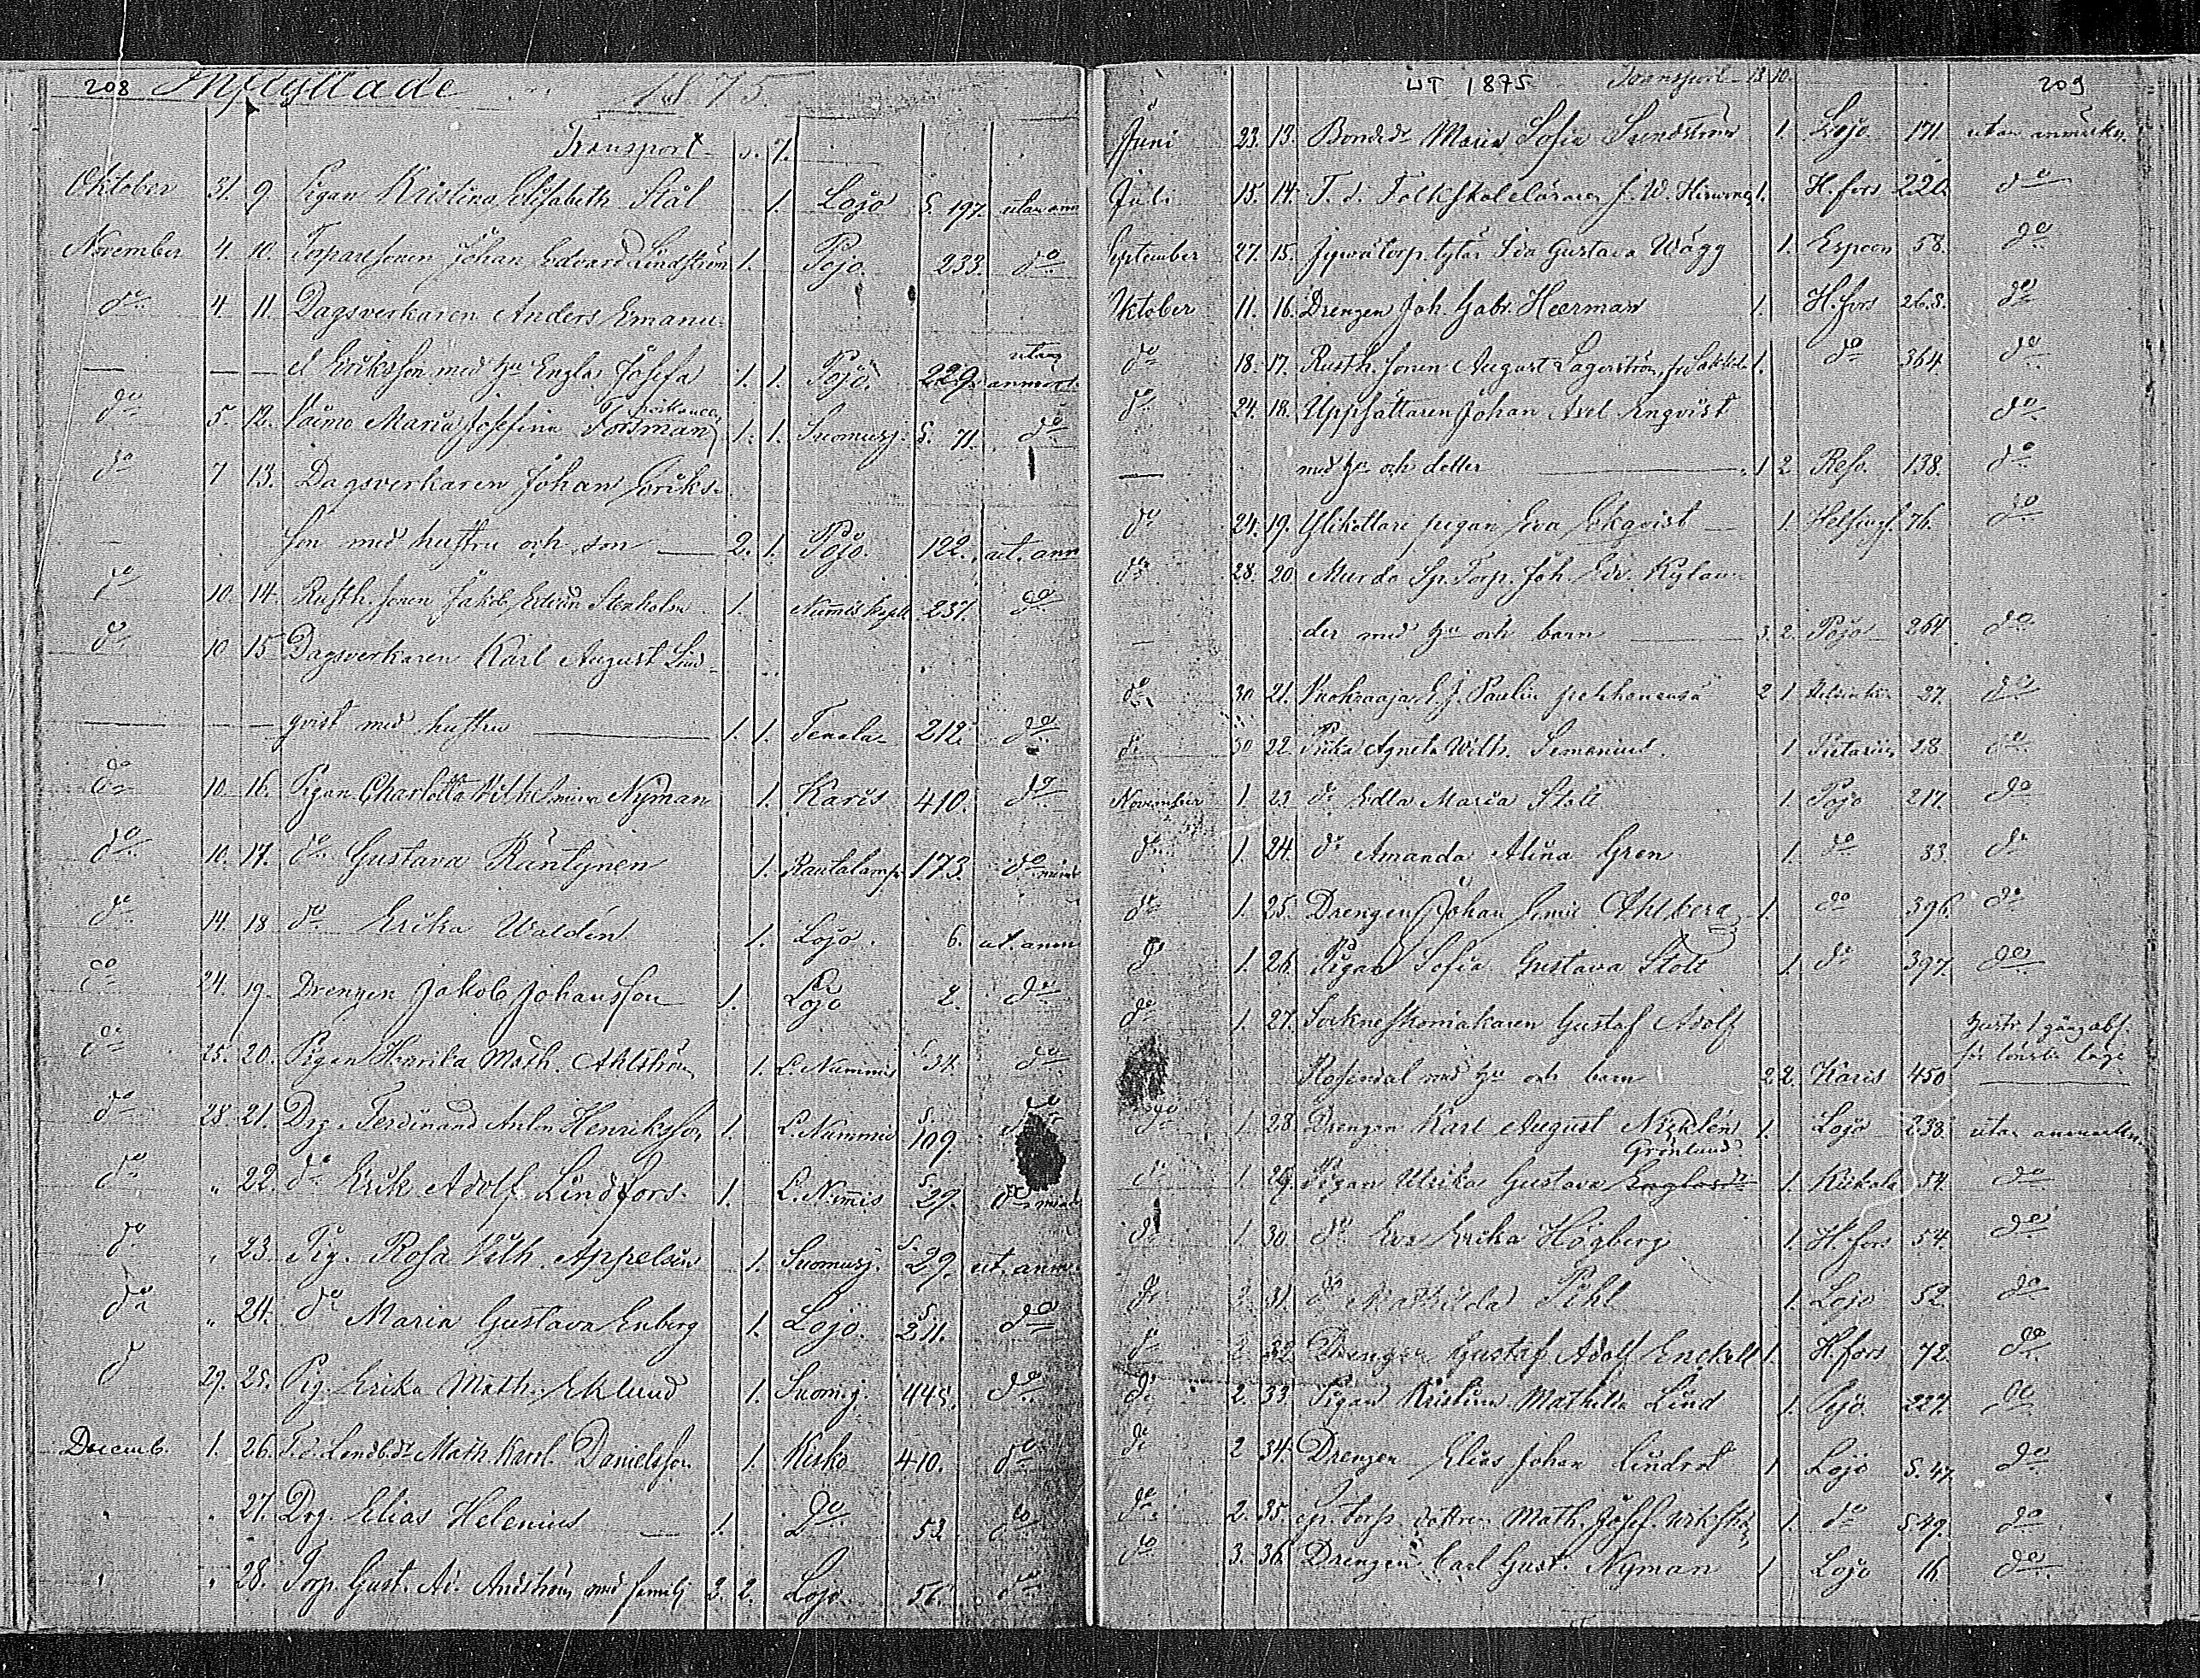 208 Inflyttade 1875
Transport 7.
Oktober 31. 9. Pigan Kristina Elisabeth Stål 1. Lojo S. 197. utan anm
November 4. 10. Torparesonen Johan Edvard Lindström 1. Pojo. 233. do
do 4. 11. Dagsverkaren Anders Emanu-
— — — el Eriksson med hu Engla Josefa 1. 1. Pojo. 229. utan anmärk.
do 5. 12. Maria Josefina Forsman 1. 1. Suomusj. S. 71. do
do 7 13. Dagsverkaren Johan Eriks-
son med hustru och son — 2. 1. Pojo 122. ut. anm
do 10. 14. Rusth. sonen Jakob Edvard Stenholm 1. Nummis kapell 237. do
do 10 15 Dagsverkaren Karl August Lind-
— — qvist med hustru — 1. 1. Tenala 212. do
do 10. 16. Pigan Charlotta Wilhelmina Nyman 1. Karis 410. do
do 10. 17. do Gustava Räntynen 1. Rautalampi 173. do
do 14. 18 do Erika Waldén 1. Lojo. 6. ut. anm
do 24. 19. Drengen Jakob Johansson 1. Lojo 2. do
do 25. 20. Pigan Henrika Math. Ahlström 1. L. Nummis S. 34. do
do 28. 21. Drg. Ferdinand Anton Henriksson 1. L. Nummis S. 109 do
do " 22. do Erik Adolf Lindfors. 1. L. Nummis S. 29. do
do " 23. Pig. Rosa Vilh. Appelin 1. Suomusj. S. 29. ut. anm.
do " 24. do Maria Gustava Enberg 1. Lojo. S. 211. do
d 29. 25. Pig. Erika Math. Eklund 1. Suomj. 445. do
Decemb. 1. 26. Math. Karol. Danielsson 1. Kisko 410. do
" " 27. Drg. Elias Helenius — 1. do 53. do
" " 28. Torp. Gust. Ad. Andström med familj 2. 2. Lojo 56. do
UT 1875 Transport 13 10. 209
Juni 23. 13. Bonded. Maria Sofia Sundström 1. Lojo 171 utan anmärkn.
Juli 15. 14. T. d. Folkskoleläraren J. W. 1. H.fors 226. do
September 27. 15. Ida Gustava Wägg 1. Espoon 58. do
Oktober 11. 16. Drengen Joh. Gabr. Heerman 1. H.fors 268. do
do 18. 17. Rusth. sonen August Lagerström 1. do 364. do
do 24. 18. Uppsättaren Johan Axel Enqvist do
— med hu och dotter — 1 2 Reso. 138. do
do 24. 19. Ylikottari pigan Eva Ekqvist — 1. Helsingf. 76. do
do 28. 20. Murdo Sp. Torp. Joh. Edv. Kylan-
der med hu och barn — 3. 2. Pojo 264 do
do 30 21. E. J. Paulin 2 1 27. do
do 30 22. Piika Agneta Wilh. Simenius. 1 28 do
November 1. 23 do Edla Maria Stolt 1. Pojo 217. do
do 1. 24. do Amanda Alina Gren 1. do 33. do
do 1. 25. Drengen Johan Emil Ahlberg 1. do 396. do
do 1. 26. Pigan Sofia Gustava Stolt 1. do 397. do
do 1. 27. Sockneskomakaren Gustaf Adolf
Rosendal med hu och barn 2 2. Karis 450
do 1. 28. Drengen Karl August Nyklén 1. Lojo 238. utan anmärkn.
Grönlund
do 1. 29. Pigan Ulrika Gustava Englund 1. Kiikala 54. do
do 1. 30. do Eva Erika Högberg 1. H.fors 54. do
do 2. 31. do Mathilda Pihl 1. Lojo 52. do
do 2. 32. Drengen Gustaf Adolf Enckell 1. H.fors 72. do
do 2. 33. Pigan Kristina Mathilda Lind 1. Pojo 227. do
do 2 34. Drengen Elias Johan Lindrot 1 Lojo S. 47. do
do 2. 35. Sp. torp. dottren Math. Josef. Wikström 1. do S. 49. do
do 3. 36. Drengen Carl Gust. Nyman 1 Lojo 16. do